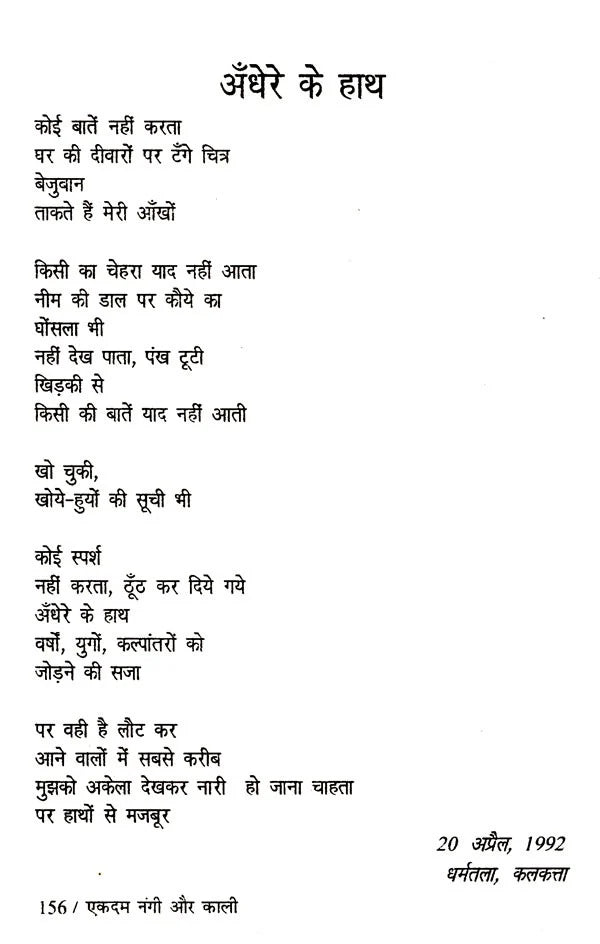 अँधेरे के हाथ
कोई बातें नहीं करता
घर की दीवारों पर टँगे चित्र
बेजुवान
ताकते हैं मेरी आँखों
किसी का चेहरा याद नहीं आता
नीम की डाल पर कौये का
घोंसला भी
नहीं देख पाता, पंख टूटी
खिड़की से
किसी की बातें याद नहीं आती
खो चुकी,
खोये-हुयों की सूची भी
कोई स्पर्श
नहीं करता, ठूँठ कर दिये गये
अँधेरे के हाथ
वर्षों, युगों, कल्पांतरों को
जोड़ने की सजा
पर वही है लौट कर
आने वालों में सबसे करीब
मुझको अकेला देखकर नारी हो जाना चाहता
पर हाथों से मजबूर
20 अप्रैल, 1992
धर्मतला, कलकत्ता
156 / एकदम नंगी और काली